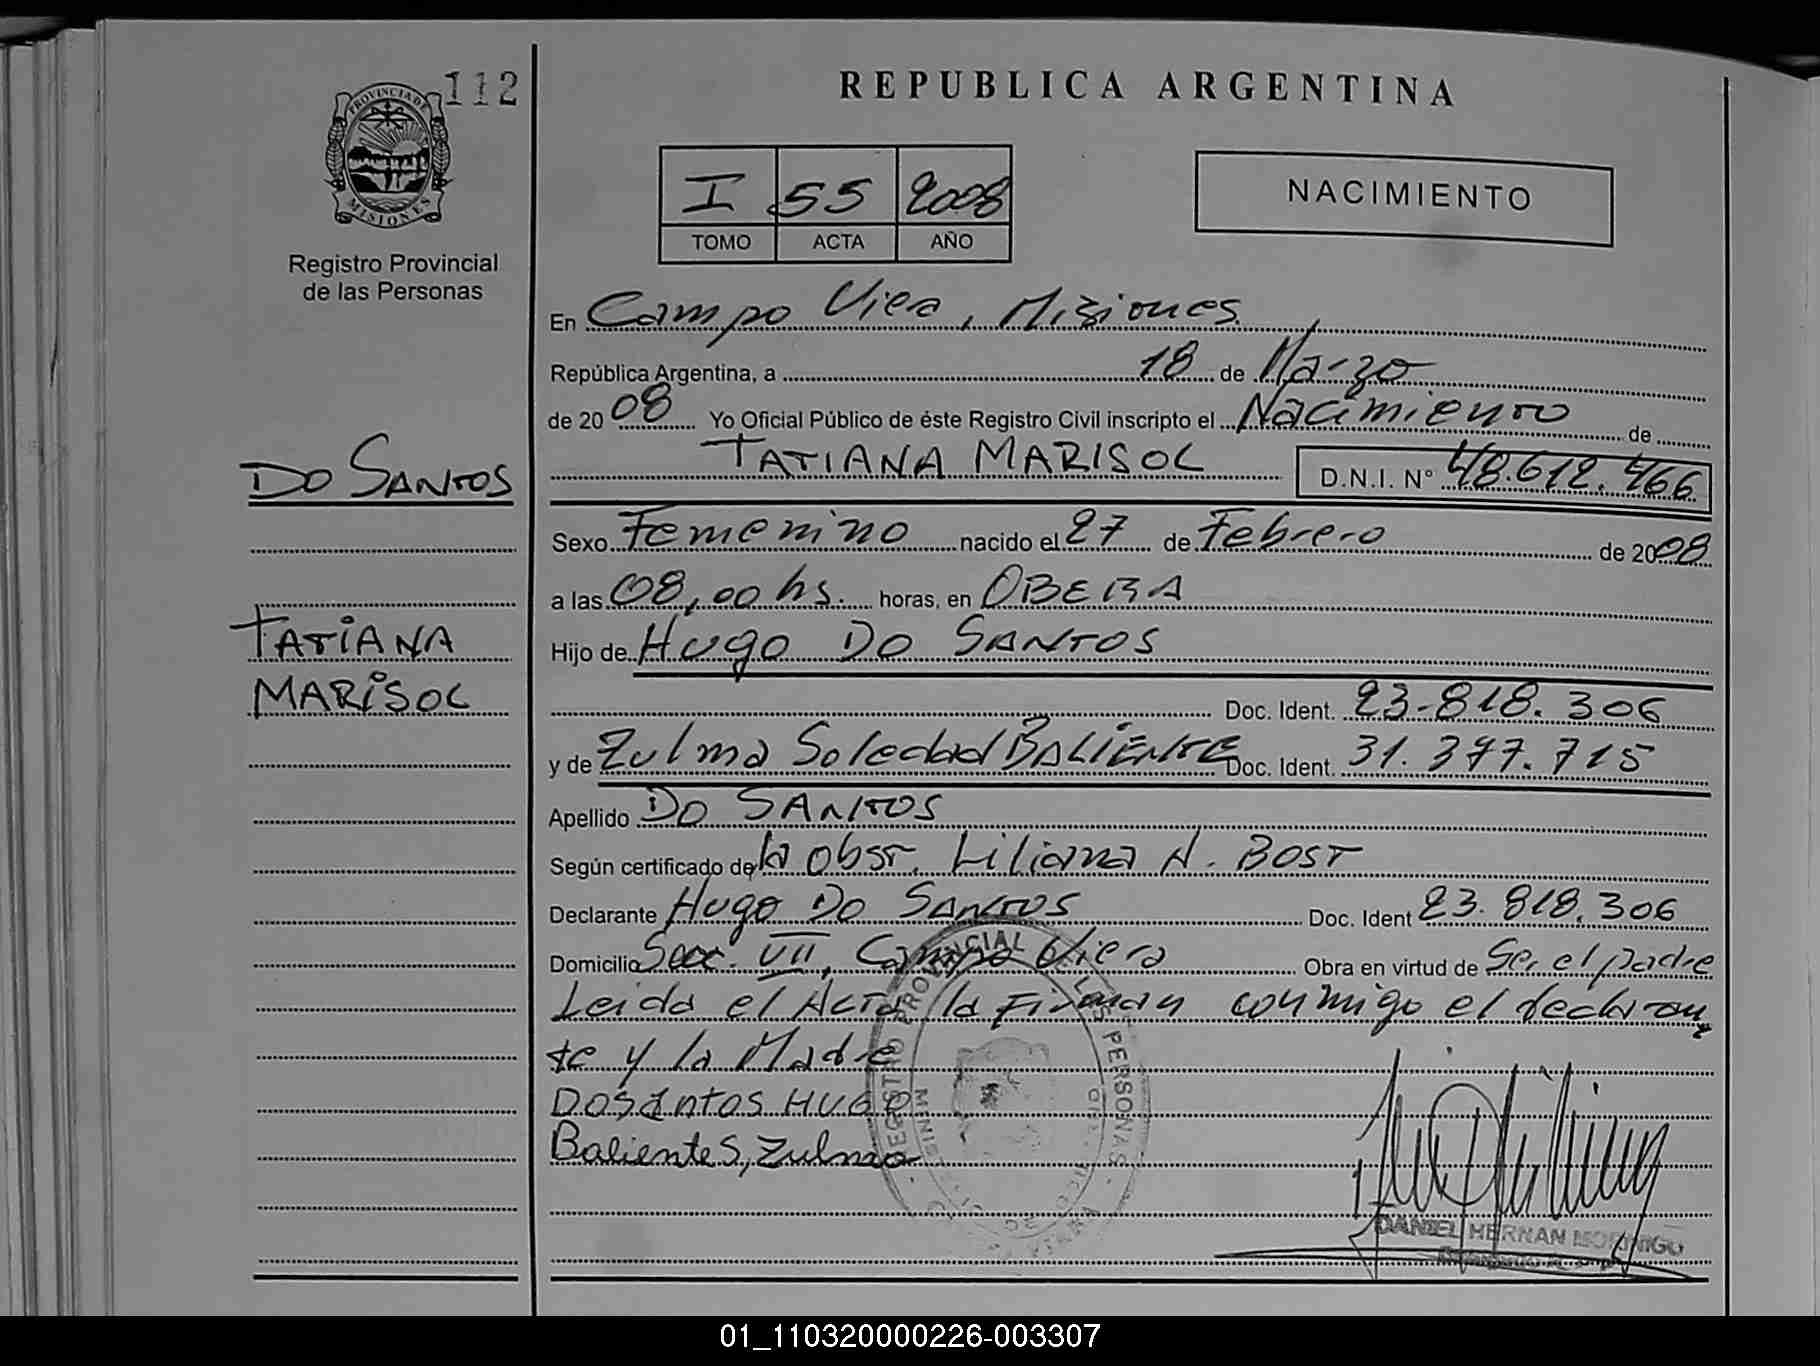 112
PROVINCIA DE
MISIONES
Registro Provincial
de las Personas
REPUBLICA ARGENTINA
I 55 2008
TOMO ACTA AÑO
NACIMIENTO
En Campo Viera, Misiones
República Argentina, a 18 de Marzo
de 2008 Yo Oficial Público de éste Registro Civil inscripto el Nacimiento de
TATIANA MARISOL D.N.I. Nº 48.612.466
DO SANTOS
TATIANA
MARISOL
Sexo Femenino nacido el 27 de Febrero de 2008
a las 08,00 hs. horas, en OBERA
Hijo de Hugo DO SANTOS
Doc. Ident. 23.818.306
y de Zulma Soledad BALIENTE Doc. Ident. 31.377.715
Apellido DO SANTOS
Según certificado de la obst. Liliana A. BOST
Declarante Hugo DO SANTOS Doc. Ident 23.818.306
Domicilio Secc. VII, Campo Viera Obra en virtud de Ser el padre
Leida el Acta la Firman conmigo el declaran
te y la Madre
DOSANTOS HUGO
BalienteS, Zulma
REGISTRO PROVINCIAL DE LAS PERSONAS
DANIEL HERNAN MORINIGO
01_110320000226-003307